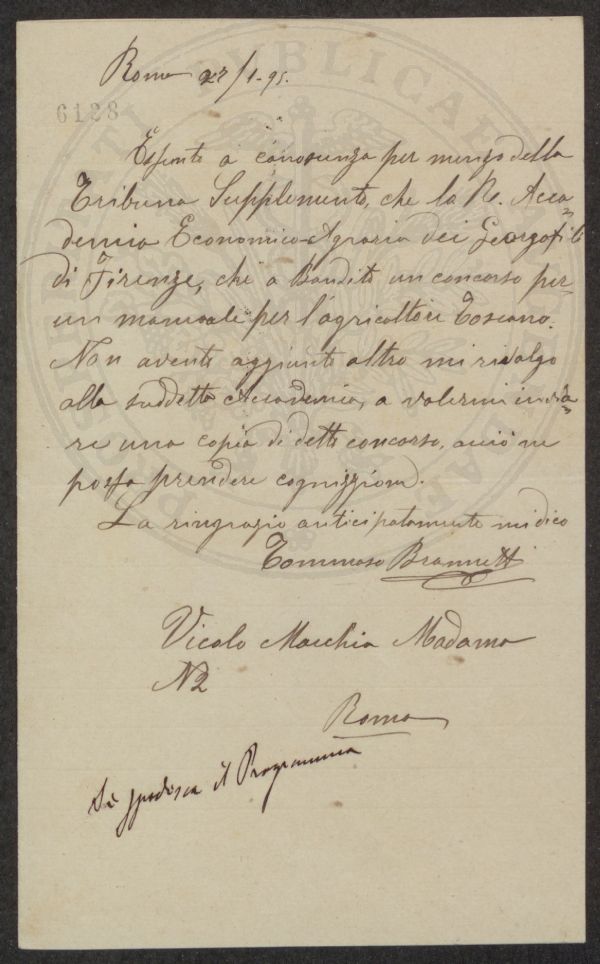 Roma 27/1-95.
6128
a conosenza per mezzo della
Tribuna Supplemento, che la R. Acca=
demia Economico-Agraria dei Georgofili
di Firenze, che a Bandito un concorso per
un manuale per l'agricoltore Toscano.
Non avente aggiunto altro mi rivolgo
alla suddetta Accademia, a volermi invia=
re una copia di detto concorso, acciò ne
possa prendere cognizzione.
La ringrazio anticipatamente mi dico
Tommaso
Vicolo Macchia Madama
N2
Roma
Si spedisca il Programma